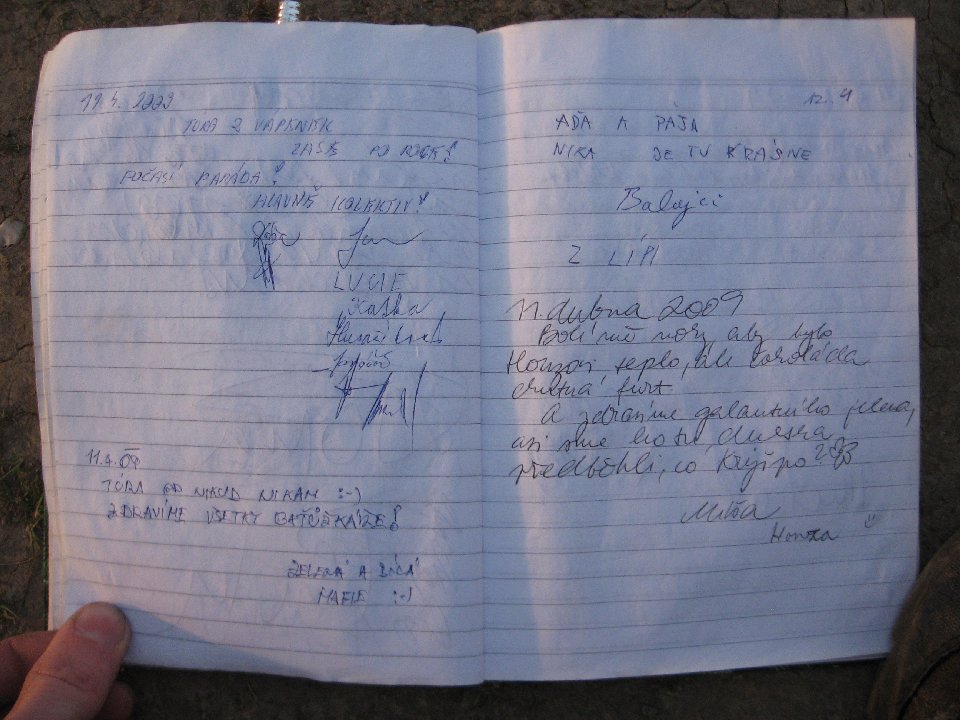 TÚRA Z VÁPENIEK
ZASE PO ROCE!
POČASÍ PARÁDA!
HLAVNĚ KOLEKTIV!
LUCIE
Katka
11.4.09
TÚRA OD NIKUD NIKAM :-)
ZDRAVÍME VŠETKY BAŤŮŽKÁŘE!
ZELENÁ A BÍLÁ
MAFIE :-)
12. 4
AĎA A PÁJA
NIKA JE TU KRÁSNE
Balajci
Z LÍPI
11. dubna 2009
Bolí mě nohy aby bylo
Honzovi teplo, ale čokoláda
chutná furt
A zdravíme galantního jelena,
asi sme ho tu dneska
předběhli, co
Míša
Honza